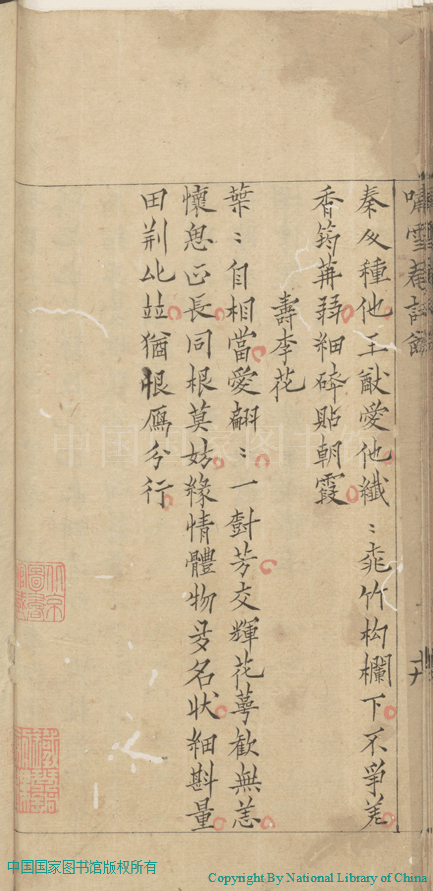 嘯雪菴詩餘
秦女種他王猷愛他纖〻飛竹构欄下不爭差
香篘苒蒻細碎貼朝霞
壽李花
葉〻自相當愛翩〻一對芳交輝花萼歡無恙
懷思正長同根莫妨緣情體物多名狀細斟量
田荆比並猶恨鴈分行
中国国家图书馆版权所有
Copyright By National Library of China